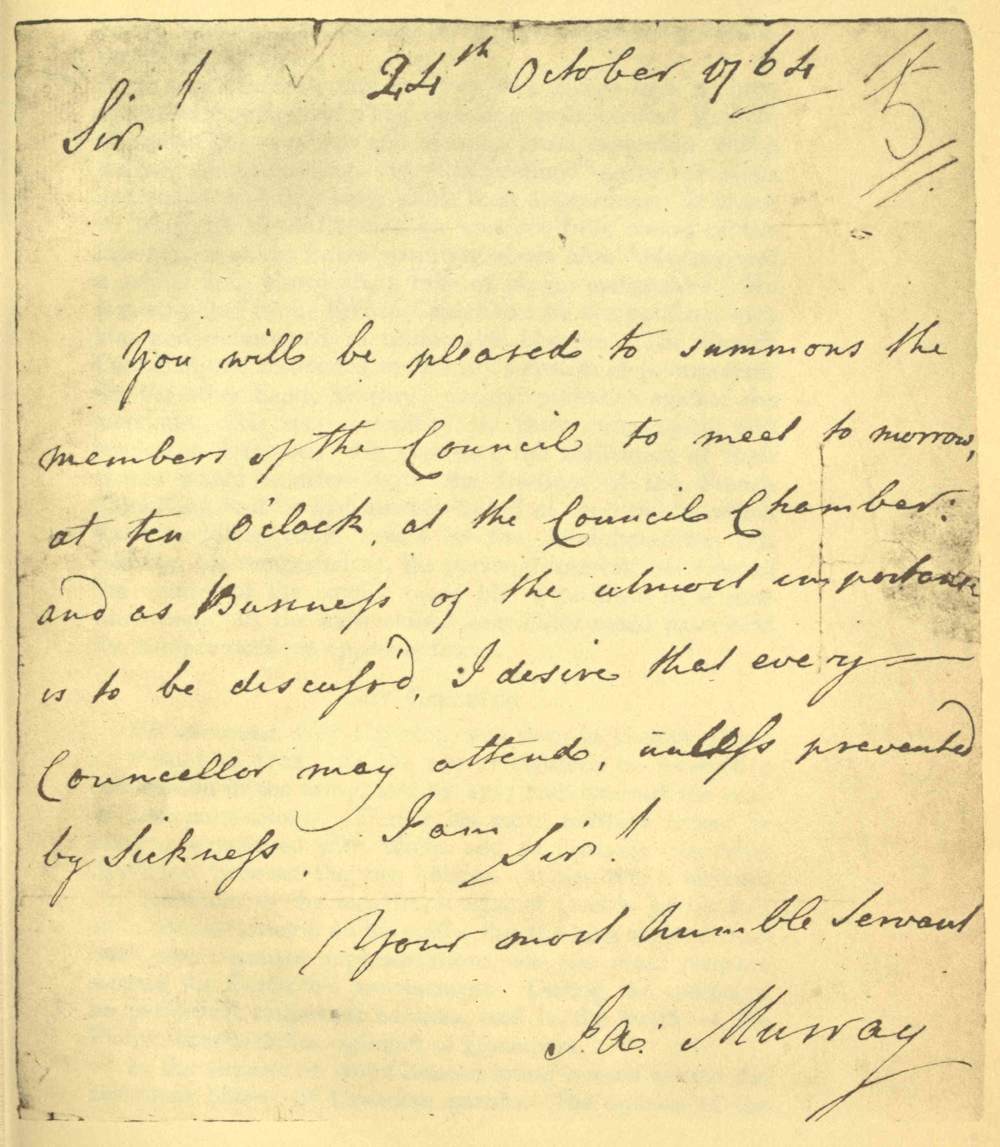 24th October 1764
Sir!
You will be pleased to summons the
members of the Council to meet to morrow,
at ten O'clock, at the Council Chamber:
and as Business of the utmost importance
is to be discuss'd, I desire that every
Councellor may attend, unless prevented
by Sickness. I am
Sir!
Your most humble Servant
Ja: Murray